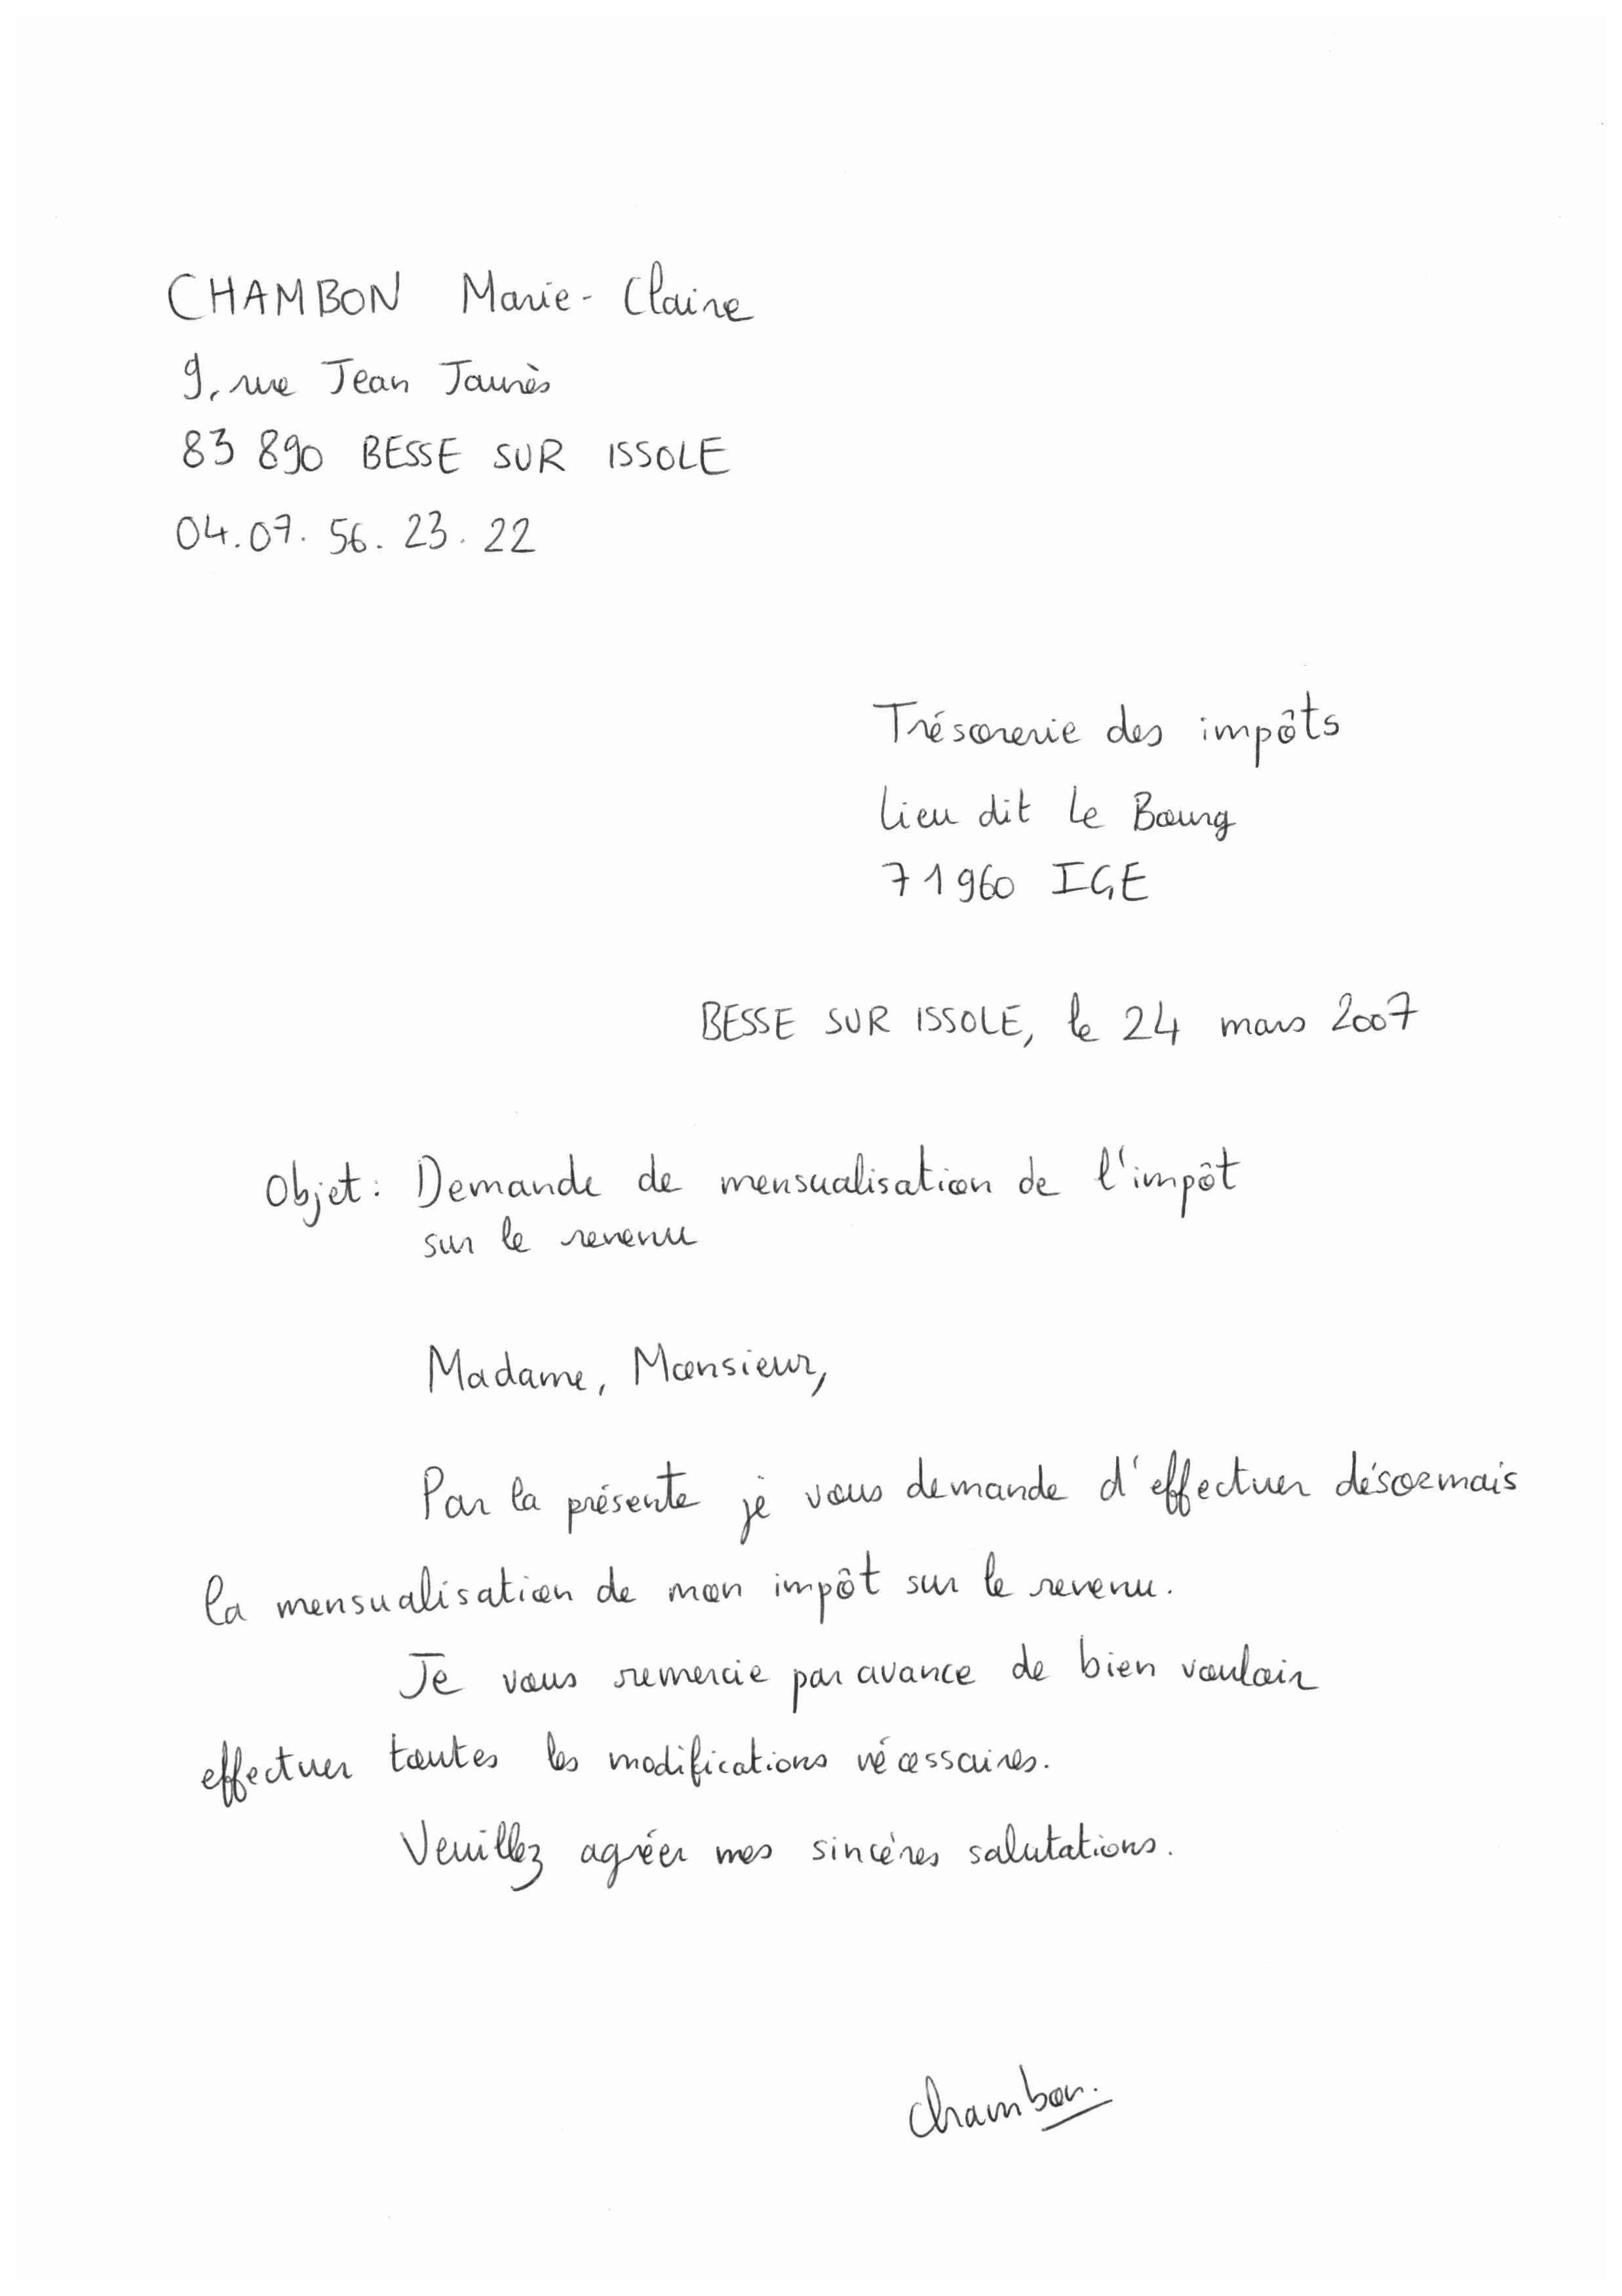 CHAMBON Marie-Claire
9, rue Jean Jaurès
83 890 BESSE SUR ISSOLE
04.07.56.23.22
Trésorerie des impôts
Lieu dit Le Bourg
71960 IGE
BESSE SUR ISSOLE, le 24 mars 2007
Objet: Demande de mensualisation de l'impôt
sur le revenu
Madame, Monsieur,
Par la présente je vous demande d'effectuer désormais
la mensualisation de mon impôt sur le revenu.
Je vous remercie par avance de bien vouloir
effectuer toutes les modifications nécessaires.
Veuillez agréer mes sincères salutations.
Chambon.